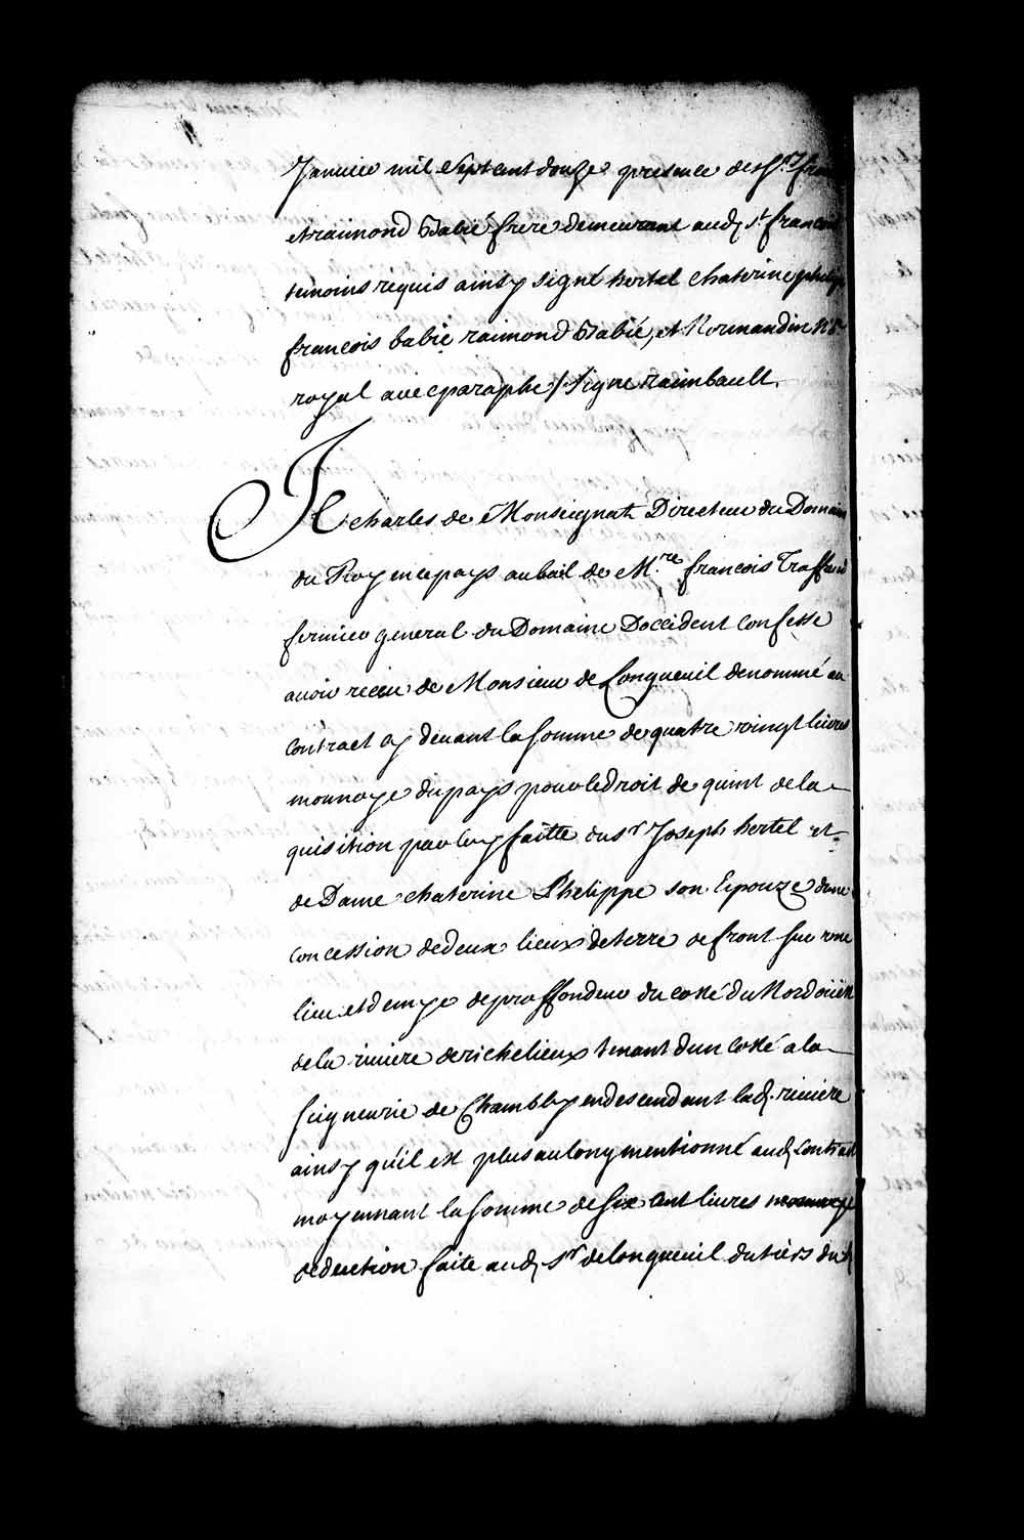 Janvier mil sept cent douze presence des Srs
et raimond Babie frere demeurant aud St francois
temoins requis ainsy signé hertel Chaterine phelipe
francois babie raimond Babié, et Normandin Nre
royal avec paraphe / Signe raimbault.
Je Charles de Monseignat Directeur du Domaine
du Roy en ce pays au bail de M.re francois Traffane
fermier general du Domaine Doccident Confesse
avoir receu de Monsieur de Longueuil denommé au
Contract cy devant la somme de quatre vingt livres
monnoye du pays pour le droit de quint de la
quisition par luy faitte du sr Joseph hertel et
de Dame Chaterine Phelippe son Epouze dune
Concession de deux lieux de terre de front sur une
lieu et demye de proffondeur du costé du Nordoüest
de la riviere de richelieux tenant dun costé a la
seigneurie de Chambly en descendant lad. riviere
ainsy qu'il est plus au long mentionné aud Contract
moyennant la somme de six Cent livres
deduction faite aud Sr de longueuil du tiers dud